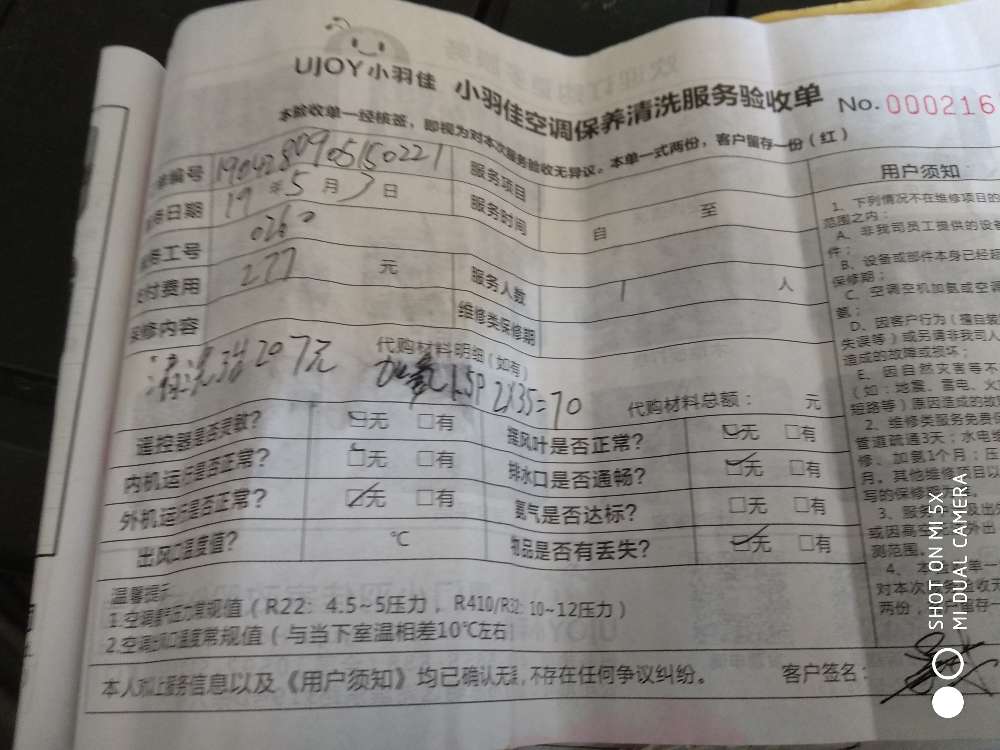 UJOY小羽佳 小羽佳空调保养清洗服务验收单 No.000216
本验收单一经核签，即视为对本次服务验收无异议。本单一式两份，客户留存一份（红）
编号 190428090515022 1 服务项目
务日期 19 年 5 月 3 日 服务时间 自 至
务工号 0260
付费用 277 元 服务人数 1 人
保修内容 维修类保修期
代购材料明细（如有）
清洗 207元 加氨 1.5P 2X35=70 代购材料总额： 元
遥控器是否灵敏？ 无 有 摆风叶是否正常？ 无 有
内机运行是否正常？ 无 有 排水口是否通畅？ 无 有
外机运行是否正常？ 无 有 氨气是否达标？ 无 有
出风口温度值？ ℃ 物品是否有丢失？ 无 有
温馨提示
1.空调氨气压力常规值（R22：4.5~5压力，R410/R32: 10~12压力）
2.空调出风口温度常规值（与当下室温相差10℃左右
本人对以上服务信息以及《用户须知》均已确认无误，不存在任何争议纠纷。 客户签名：
用户须知：
1、下列情况不在维修项目的
范围之内：
A、非我司员工提供的设备
件；
B、设备或部件本身已经超
保修期；
C、空调空机加氨或空调
氨；
D、因客户行为（擅自装
失误等）或另请非我司人
造成的故障或损坏；
E、因自然灾害等不
（如：地震、雷电、火
短路等）原因造成的故
2、维修类服务免费保
管道疏通3天；水电维
修、加氨1个月；压
月。其他维修项目以
写的保修
3、服务
或因高空 外出
测范围。
4、本 单一
对本次 收无
两份， 留存一
SHOT ON MI 5X
MI DUAL CAMERA